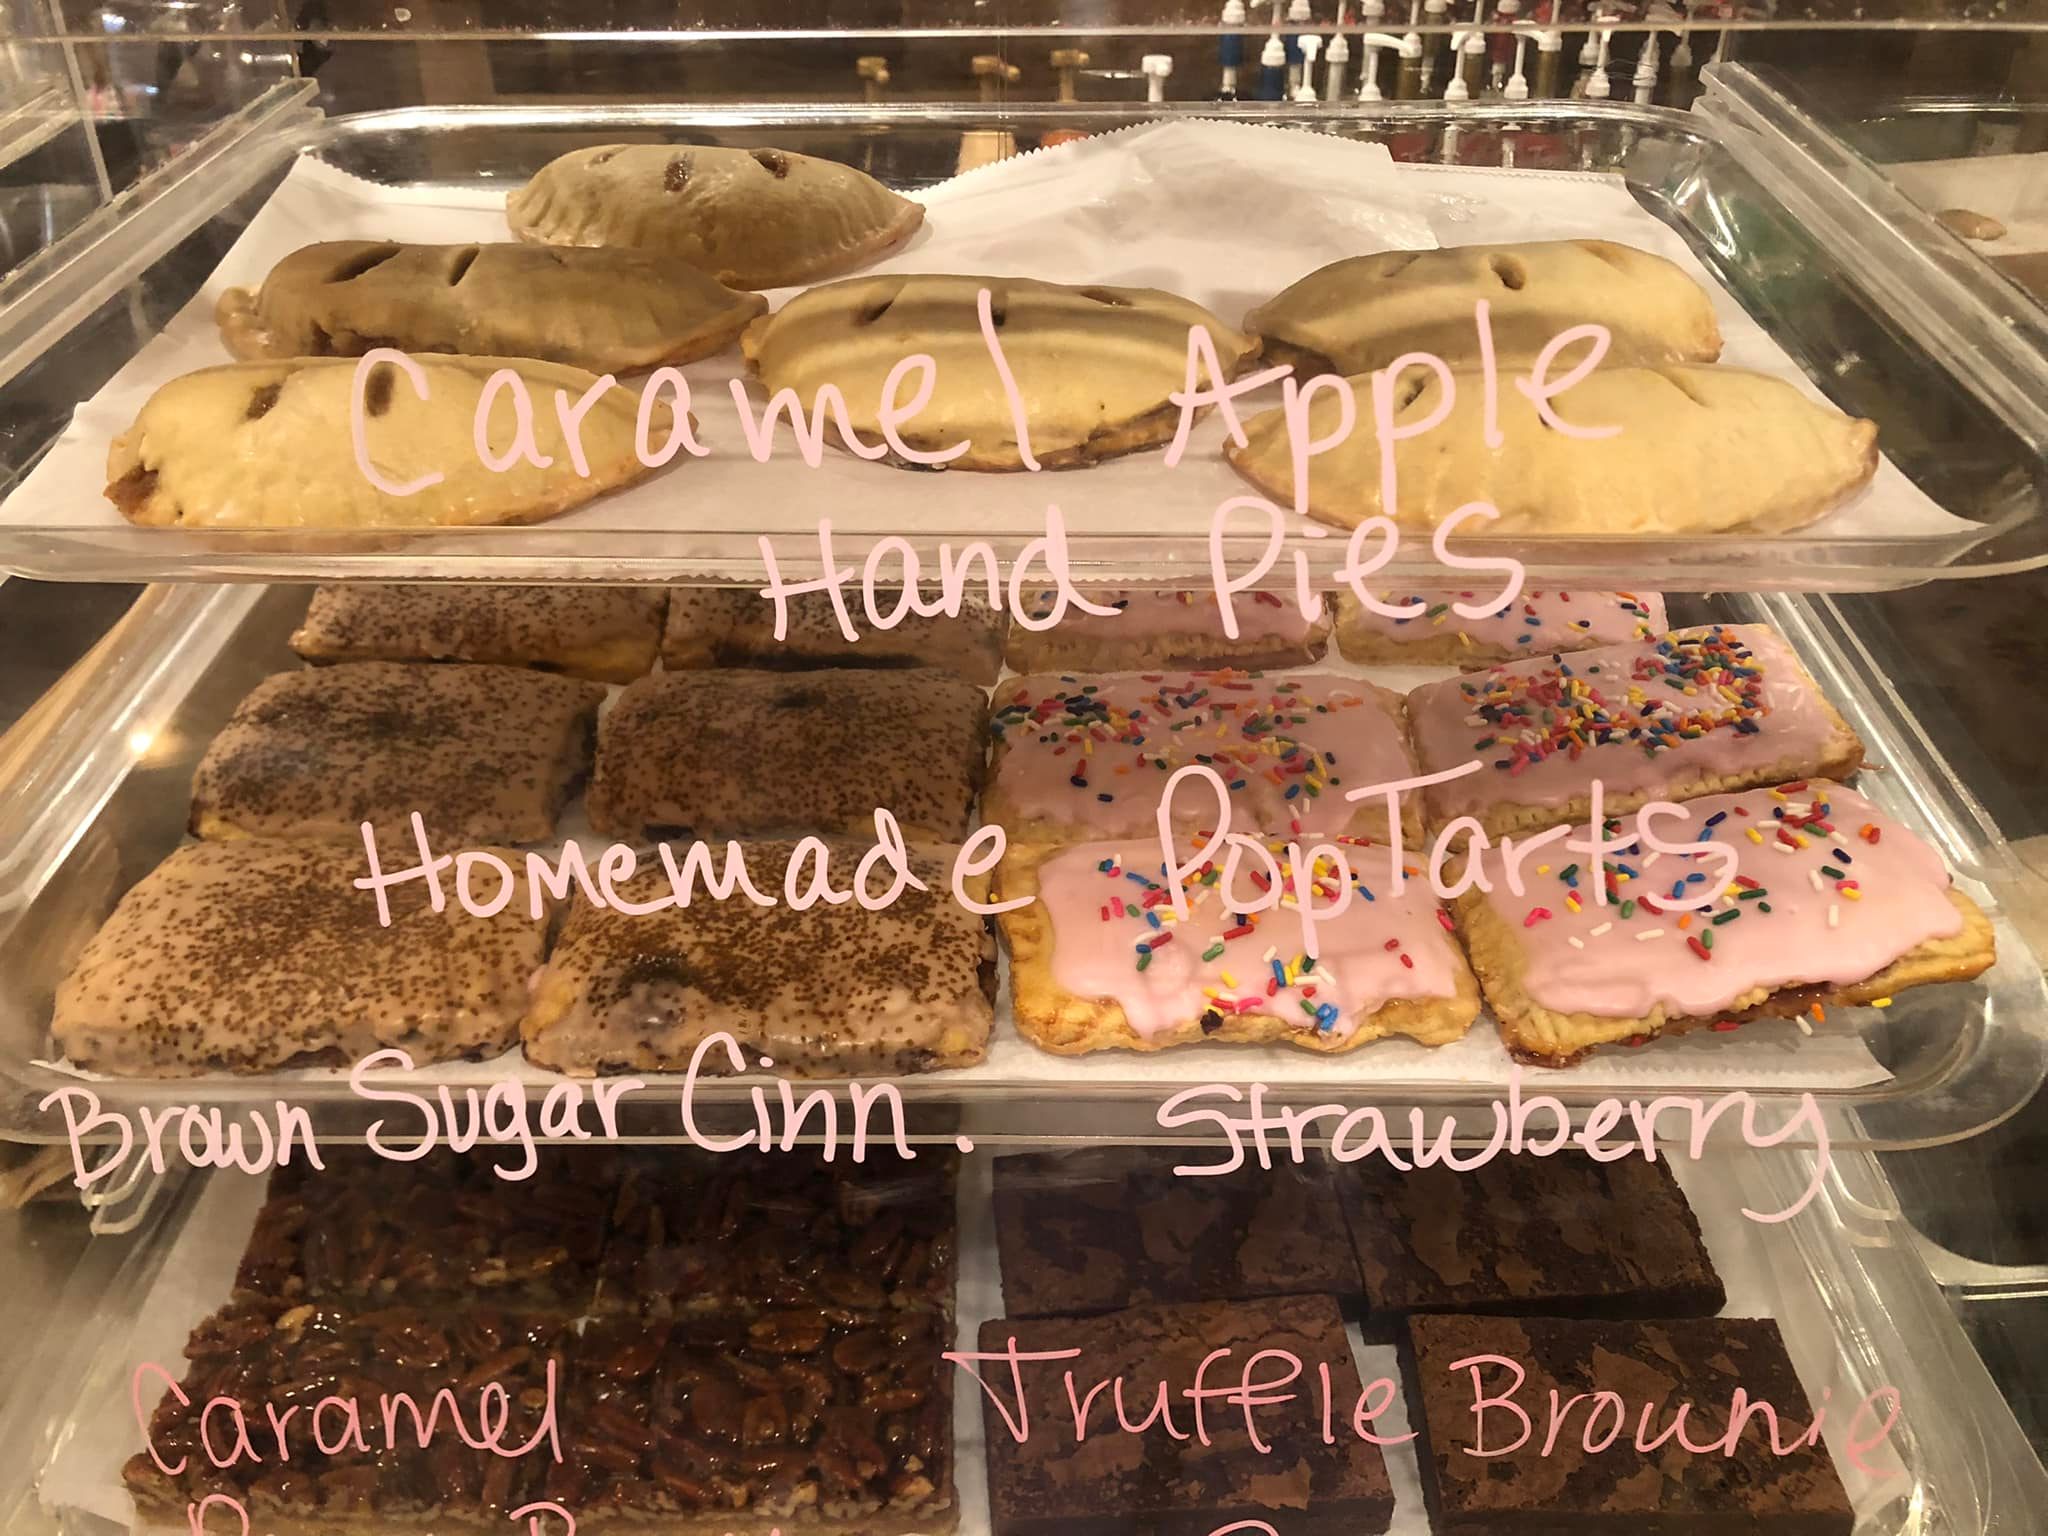 Caramel Apple
Hand Pies
Homemade PopTarts
Brown Sugar Cinn. Strawberry
Caramel Truffle Brownie